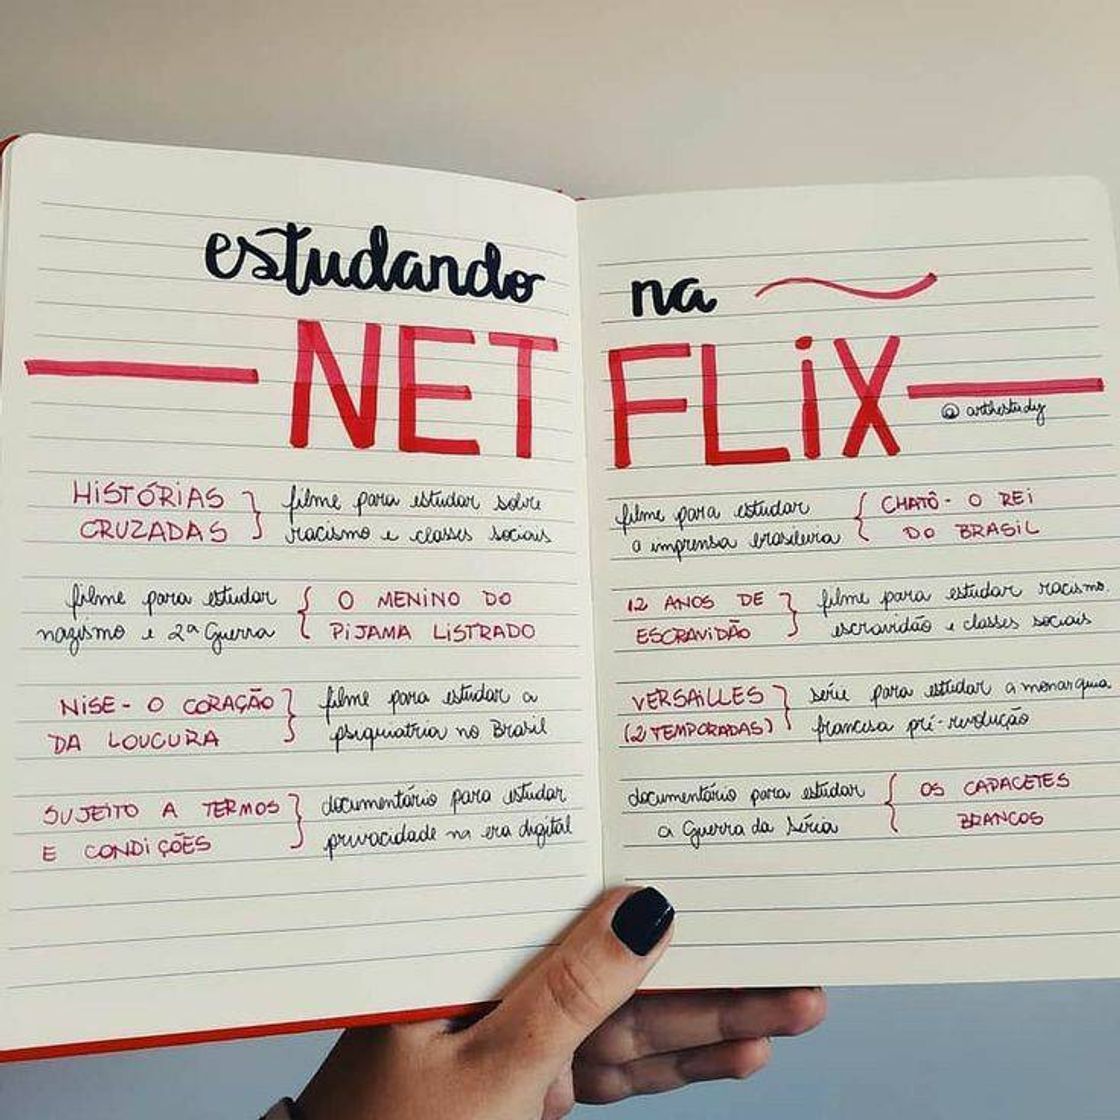 estudando
NET
HISTÓRIAS } filme para estudar sobre
CRUZADAS } racismo e classes sociais
filme para estudar { O MENINO DO
nazismo e 2ª Guerra { PIJAMA LISTRADO
NISE - O CORAÇÃO } filme para estudar a
DA LOUCURA } psiquiatria no Brasil
SUJEITO A TERMOS } documentário para estudar
E CONDIÇÕES } privacidade na era digital
na
FLiX
@arthestudy
filme para estudar { CHATÔ - O REI
a imprensa brasileira { DO BRASIL
12 ANOS DE } filme para estudar racismo
ESCRAVIDÃO } escravidão e classes sociais
VERSAILLES } série para estudar a monarquia
(2 TEMPORADAS) } francesa pré-revolução
documentário para estudar { OS CAPACETES
a Guerra da Síria { BRANCOS